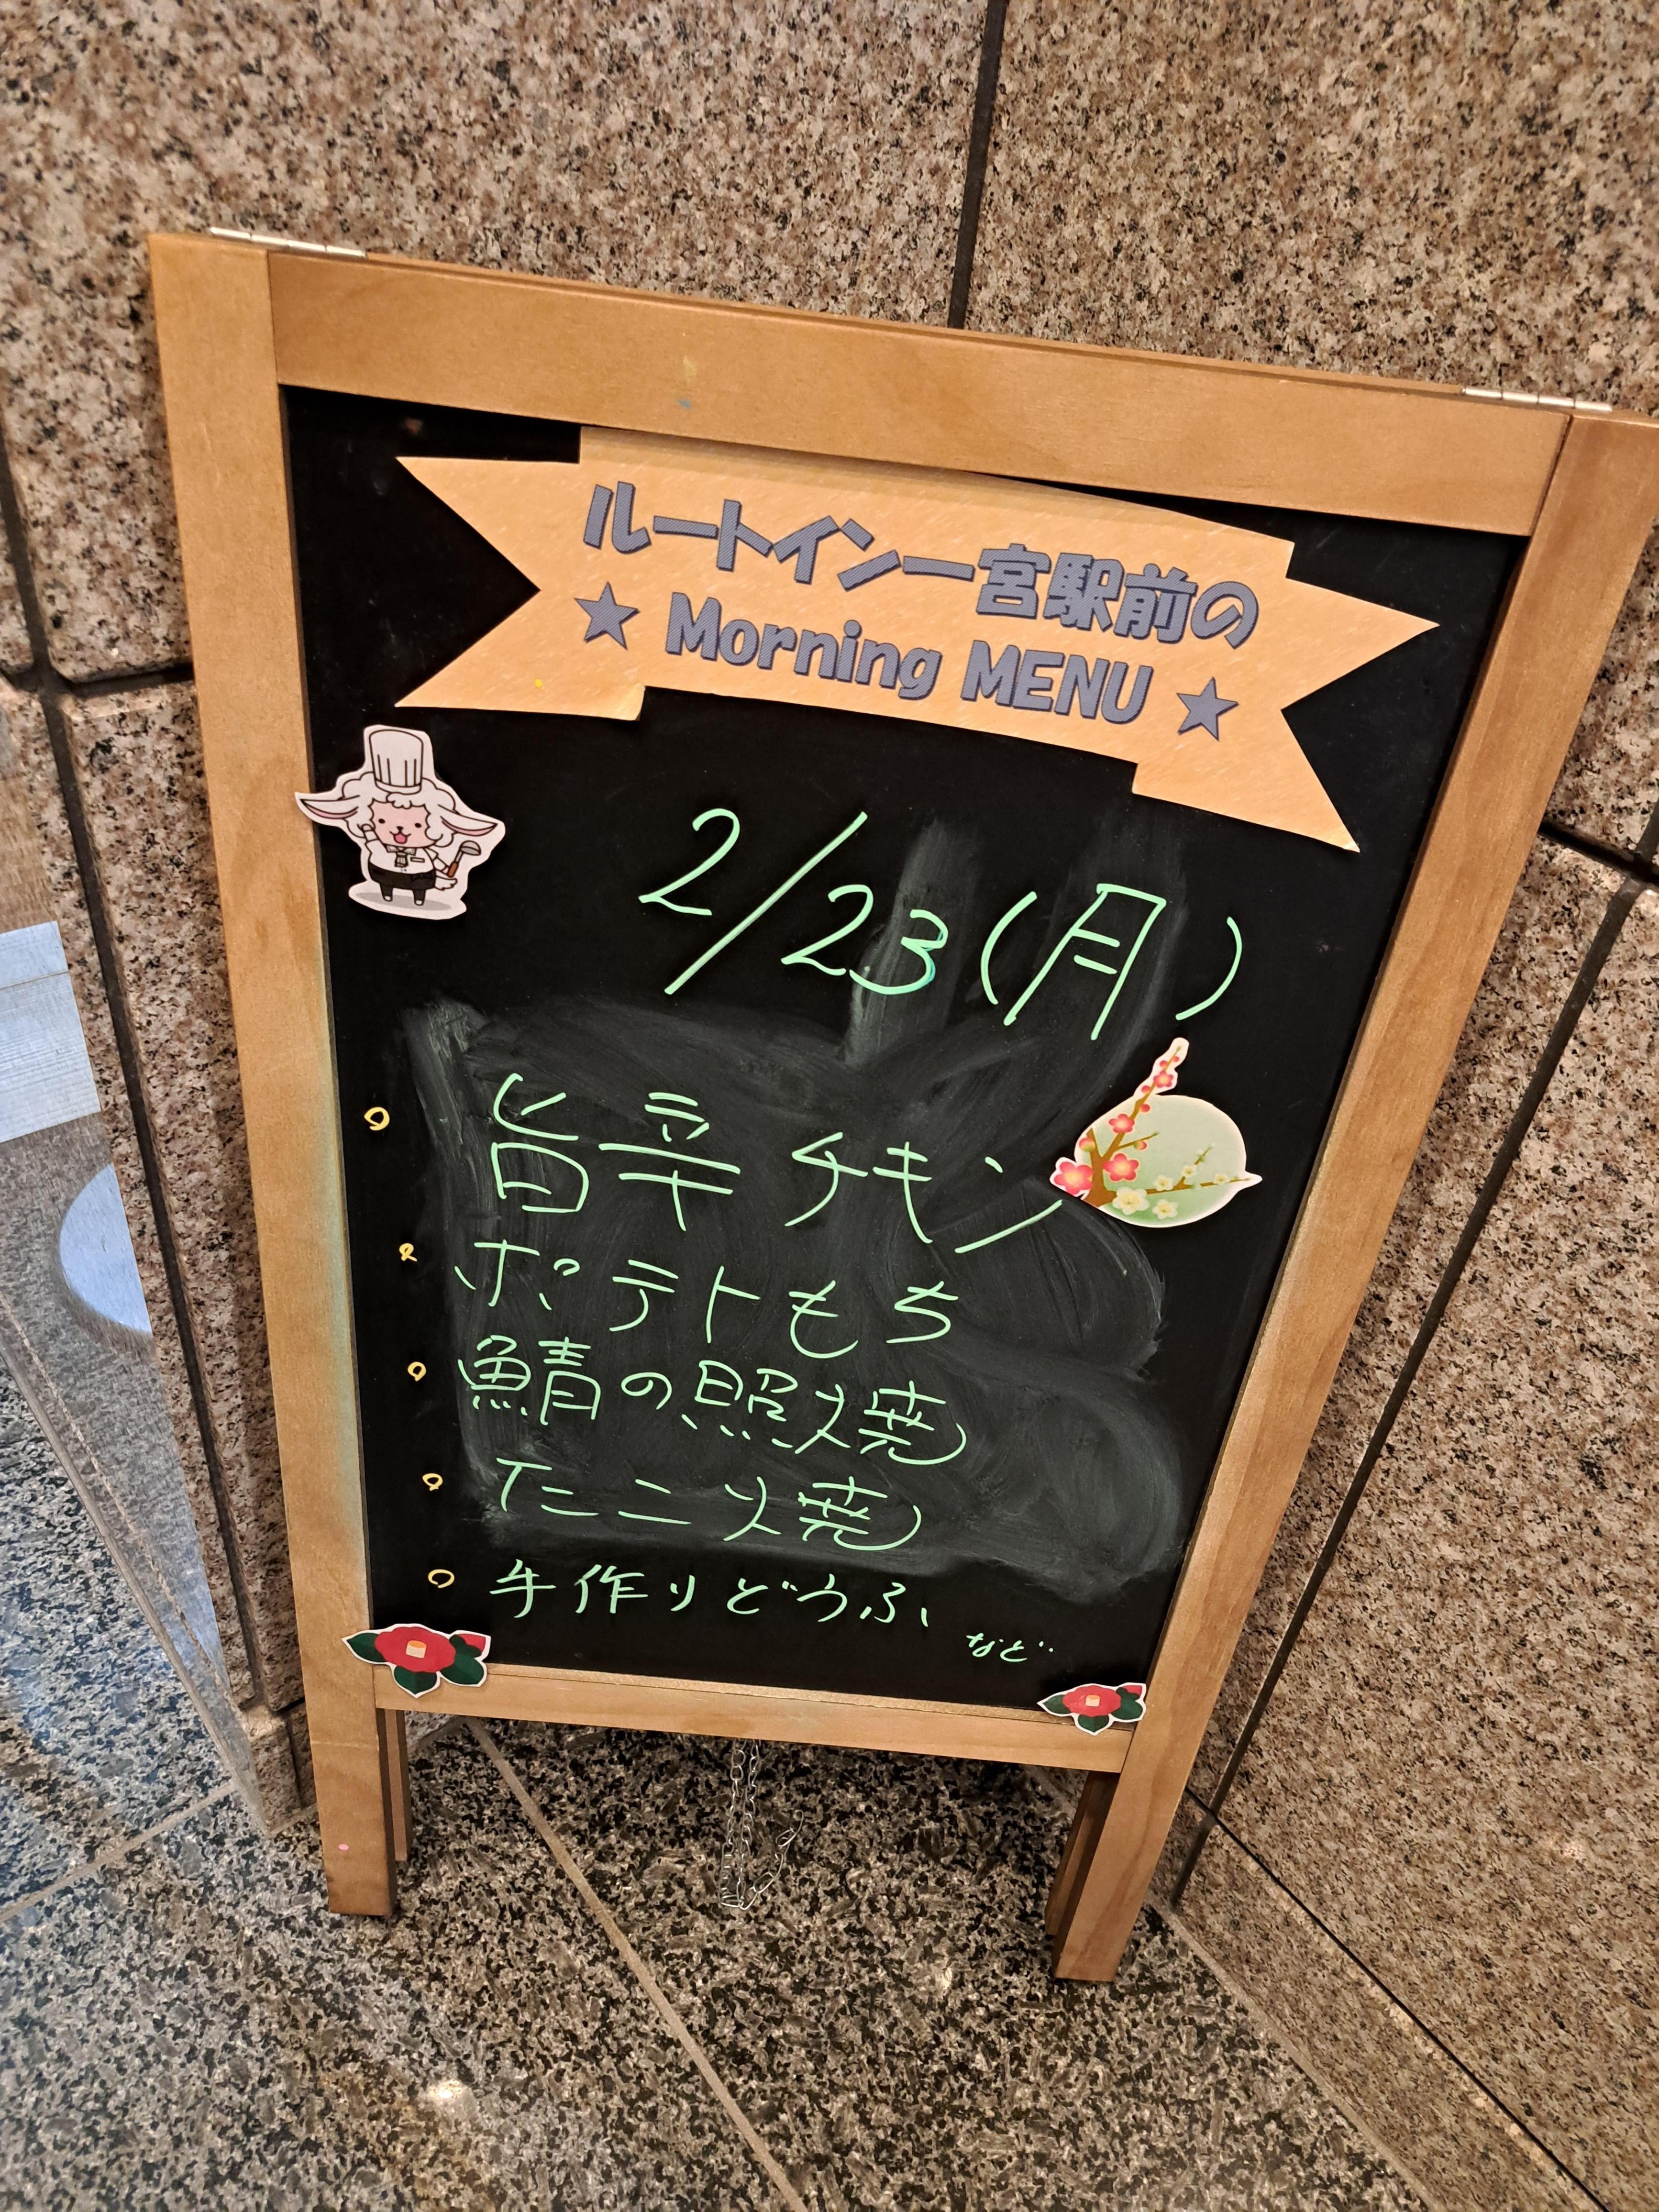 ルートイン一宮駅前の
★ Morning MENU ★
2/23(月)
旨辛チキン
ポテトもち
鯖の照火焼
たこ火焼
手作りどうふ、
など